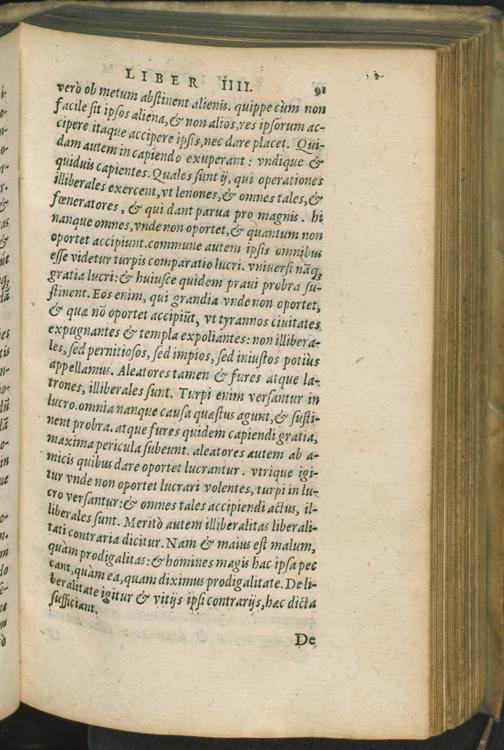 LIBER IIII. 91
verò ob metum abstinent alienis. quippe cùm non
facile sit ipsos aliena, & non alios, res ipsorum ac-
cipere itaque accipere ipsis, nec dare placet. Qui-
dam autem in capiendo exuperant: vndique &
quiduis capientes. Quales sunt ij, qui operationes
illiberales exercent, vt lenones, & omnes tales, &
fœneratores, & qui dant parua pro magnis. hi
nanque omnes, vnde non oportet, & quantum non
oportet accipiunt. commune autem ipsis omnibus
esse videtur turpis comparatio lucri. vniuersi nãq;
gratia lucri: & huiusce quidem praui probra su-
stinent. Eos enim, qui grandia vnde non oportet,
& quæ nõ oportet accipiũt, vt tyrannos ciuitates
expugnantes & templa expoliantes: non illibera-
les, sed pernitiosos, sed impios, sed iniustos potiùs
appellamus. Aleatores tamen & fures atque la-
trones, illiberales sunt. Turpi enim versantur in
lucro. omnia nanque causa quæstus agunt, & susti-
nent probra. atque fures quidem capiendi gratia,
maxima pericula subeunt. aleatores autem ab a-
micis quibus dare oportet lucrantur. vtrique igi-
tur vnde non oportet lucrari volentes, turpi in lu-
cro versantur: & omnes tales accipiendi actus, il-
liberales sunt. Meritò autem illiberalitas liberali-
tati contraria dicitur. Nam & maius est malum,
quàm prodigalitas: & homines magis hac ipsa pec
cant, quàm ea, quam diximus prodigalitate. De li-
beralitate igitur & vitijs ipsi contrarijs, hæc dicta
sufficiant.
De